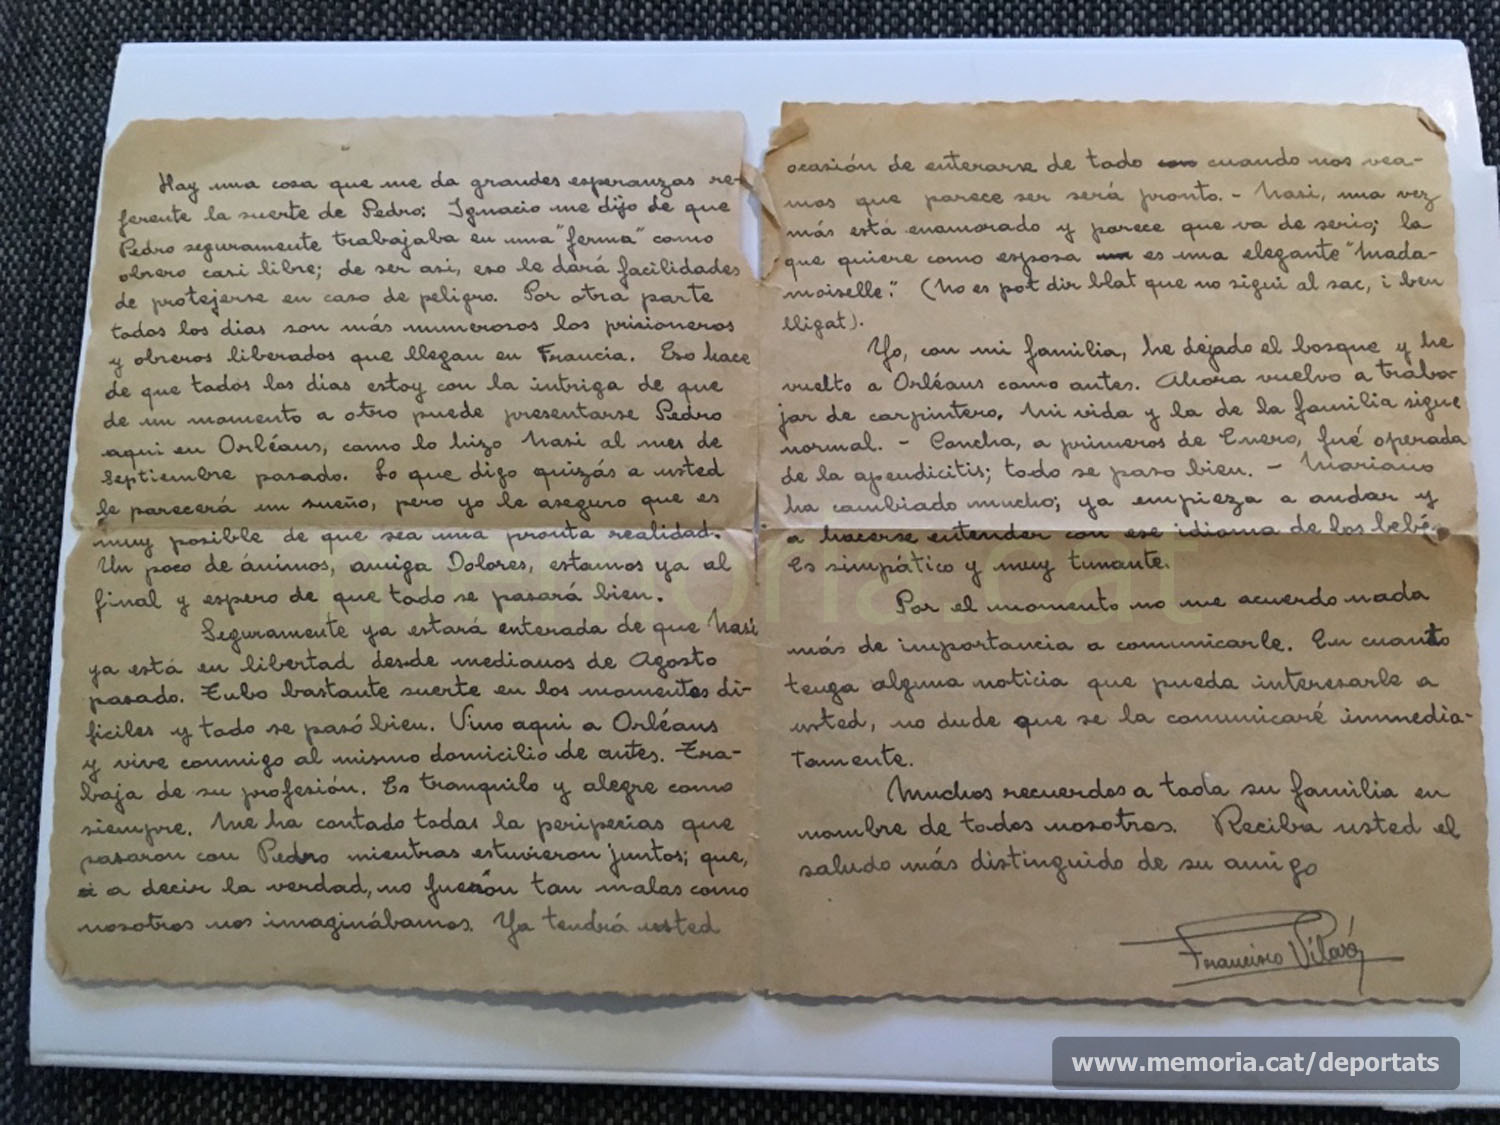 Hay una cosa que me da grandes esperanzas re-
ferente la suerte de Pedro: Ignacio me dijo de que
Pedro seguramente trabajaba en una "ferma" como
obrero casi libre; de ser asi, eso le dará facilidades
de protejerse en caso de peligro. Por otra parte
todos los dias son más numerosos los prisioneros
y obreros liberados que llegan en Francia. Eso hace
de que todos los dias estoy con la intriga de que
de un momento a otro puede presentarse Pedro
aqui en Orléans, como lo hizo Nasi al mes de
Septiembre pasado. Lo que digo quizás a usted
le parecerá un sueño, pero yo le aseguro que es
muy posible de que sea una pronta realidad.
Un poco de ánimos, amiga Dolores, estamos ya al
final y espero de que todo se pasará bien.
Seguramente ya estará enterada de que Nasi
ya está en libertad desde medianos de Agosto
pasado. Tubo bastante suerte en los momentos di-
ficiles y todo se pasó bien. Vino aqui a Orléans
y vive conmigo al mismo domicilio de antes. Tra-
baja de su profesión. Es tranquilo y alegre como
siempre. Me ha contado todas la peripecias que
pasaron con Pedro mientras estuvieron juntos; que,
a decir la verdad, no fueron tan malas como
nosotros nos imaginábamos. Ya tendrá usted
ocasión de enterarse de todo con cuando nos vea-
mos que parece ser será pronto. - Nasi, una vez
más está enamorado y parece que va de serio; la
que quiere como esposa un es una elegante "Mada-
moiselle". (No es pot dir blat que no sigui al sac, i ben
lligat).
Yo, con mi familia, he dejado el bosque y he
vuelto a Orléans como antes. Ahora vuelvo a traba-
jar de carpintero. Mi vida y la de la familia sigue
normal. - Concha, a primeros de Enero, fué operada
de la apendicitis; todo se paso bien. - Mariano
ha cambiado mucho; ya empieza a andar y
a hacerse entender con ese idioma de los bebé.
Es simpático y muy tunante.
Por el momento no me acuerdo nada
más de importancia a comunicarle. En cuanto
tenga alguna noticia que pueda interesarle a
usted, no dude que se la comunicaré inmedia-
tamente.
Muchos recuerdos a toda su familia en
nombre de todos nosotros. Reciba usted el
saludo más distinguido de su amigo
Francisco Vilaró
www.memoria.cat/deportats